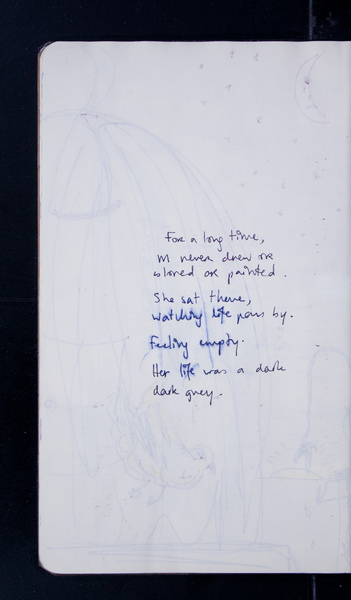 For a long time,
M never drew or
colored or painted.
She sat there,
watching life pass by.
Feeling empty.
Her life was a dark
dark grey.